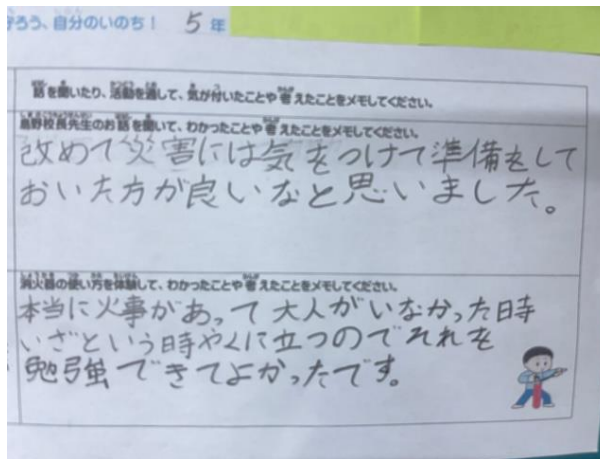 守ろう、自分のいのち! 5年
話を聞いたり、活動を通して、気が付いたことや考えたことをメモしてください。
島野校長先生のお話を聞いて、わかったことや考えたことをメモしてください。
改めて災害には気をつけて準備をして
おいた方が良いなと思いました。
消火器の使い方を体験して、わかったことや考えたことをメモしてください。
本当に火事があって大人がいなかった時
いざという時やくに立つのでそれを
勉強できてよかったです。